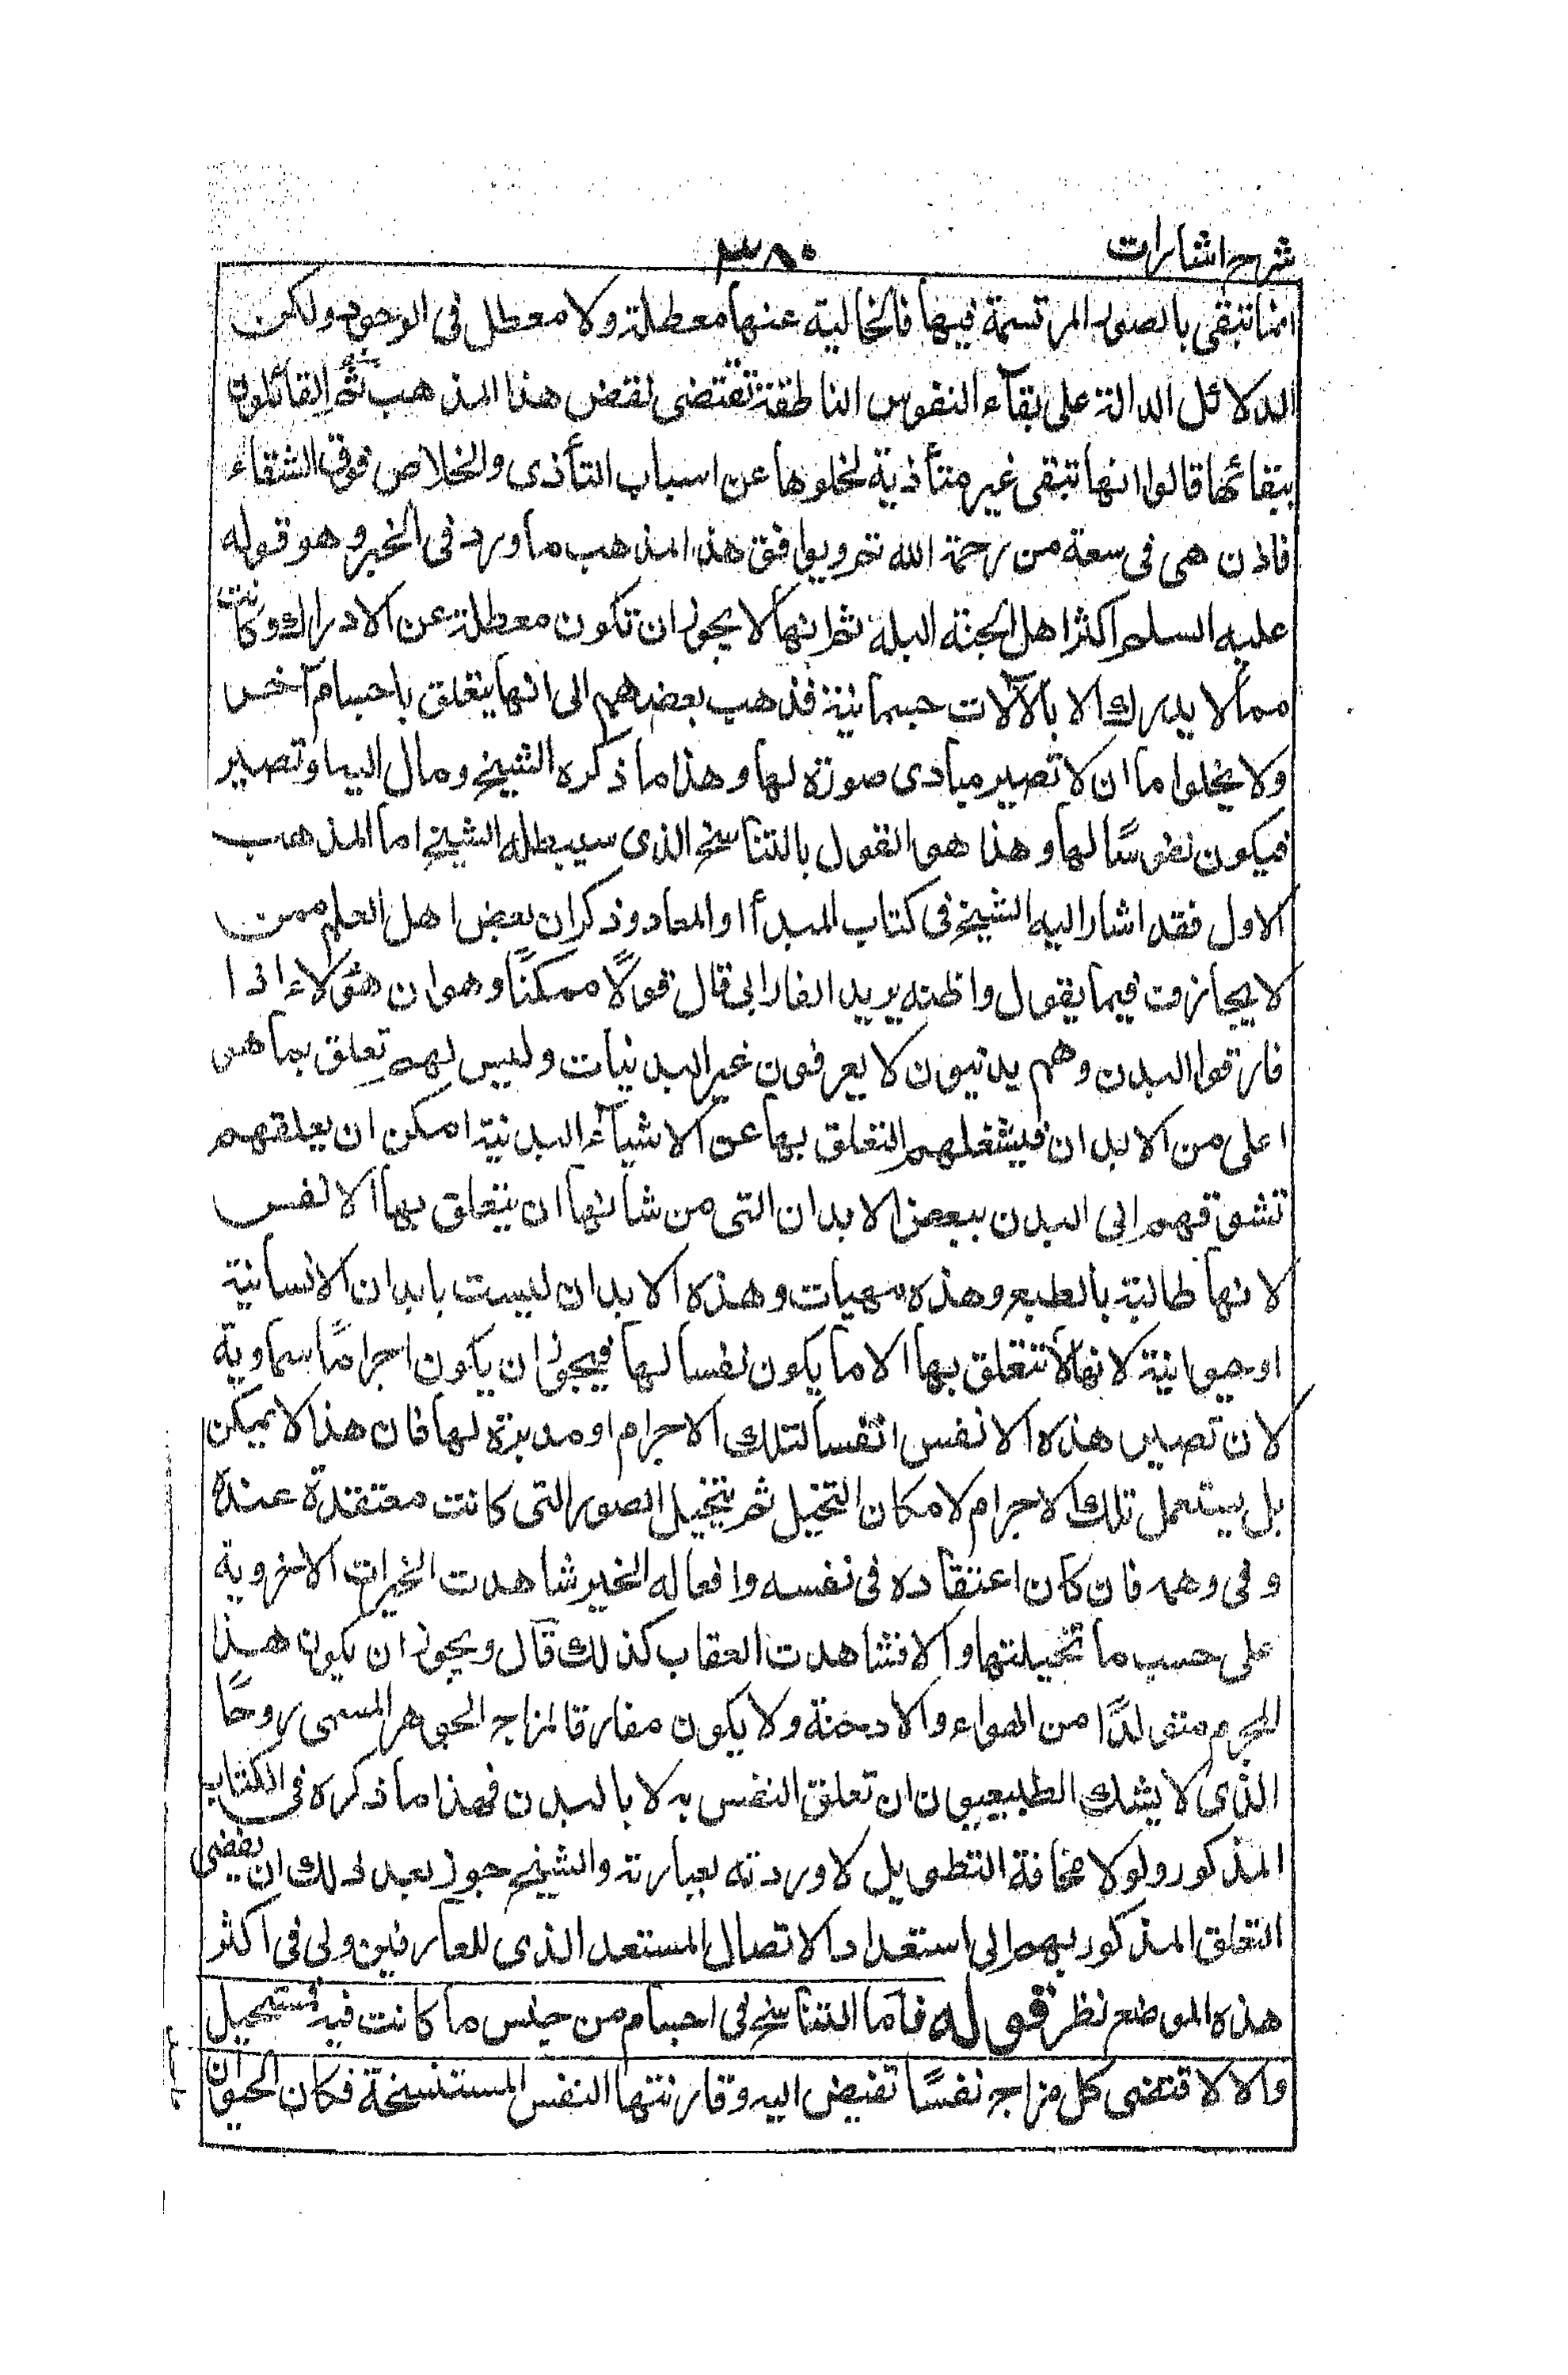 شرح اشارات
٣٨٠
انما تبقى بالصور المرتسمة فيها فالخالية عنها معطلة ولا معطل فى الوجود ولكن
الدلائل الدالة على بقآء النفوس الناطقة تقتضى نقض هذا المذهب ثم القائلون
ببقائها قالوا انها تبقى غير متأذية لخلوها عن اسباب التأذى والخلاص فوق الشقاء
فاذن هى فى سعة من رحمة الله تع ويوافق هذا المذهب ما ورد فى الخبر وهو قوله
عليه السلم اكثر اهل الجنة البله ثم انها لا يجوز ان تكون معطلة عن الادراك وكانت
مما لا يدرك الا بالآلات جسمانية فذهب بعضهم الى انها يتعلق باجسام آخر
ولا يخلوا ما ان لا تصير مبادى صورة لها وهذا ما ذكره الشيخ ومال اليه او تصير
فيكون نفوسًا لها وهذا هو القول بالتناسخ الذى سيبطله الشيخ اما المذهب
الاول فقد اشار اليه الشيخ فى كتاب المبدأ والمعاد وذكر ان بعض اهل العلم ممن
لا يجازف فيما يقول واظنه يريد الفارابى قال قولًا ممكنًا وهو ان هؤلاء اذا
فارقوا البدن وهم بدنيون لا يعرفون غير البدنيات وليس لهم تعلق بما هى
اعلى من الابدان فيشغلهم التعلق بها عن الاشيآء البدنية امكن ان يعلقهم
تشوقهم الى البدن ببعض الابدان التى من شانها ان يتعلق بها الانفس
لانها طالبة بالطبع وهذه مهيات وهذه الابدان ليست بابدان الانسانية
او حيوانية لانها لا تتعلق بها الا ما يكون نفسا لها فيجوز ان يكون اجرامًا سماوية
لا ان تصير هذه الانفس انفسا لتلك الاجرام او مدبرة لها فان هذا لا يمكن
بل يستعمل تلك الاجرام لامكان التخيل ثم يتخيل الصور التى كانت معتقدة عنده
وفى وهمه فان كان اعتقاده فى نفسه وافعاله الخير شاهدت الخيرات الاخروية
على حسب ما تخيلتها والا فشاهدت العقاب كذلك قال ويجوز ان يكون هذا
الجرم متولدًا من الهواء والادخنة ولا يكون مفارقا لمزاج الجوهر المسمى روحًا
الذى لا يشك الطبيعيون ان تعلق النفس به لا بالبدن فهذا ما ذكره فى الكتاب
المذكور ولولا مخافة التطويل لاوردته بعبارته والشيخ جوز بعد ذلك ان يفضى
التعلق المذكور بهم الى استعداد الاتصال المستعد الذى للعارفين ولى فى اكثر
هذه المواضع نظر قوله فاما التناسخ فى اجسام من جنس ما كانت فيه فمستحيل
والا لاقتضى كل مزاج نفسًا تفيض اليه وقارنتها النفس المستنسخة فكان لحيوان